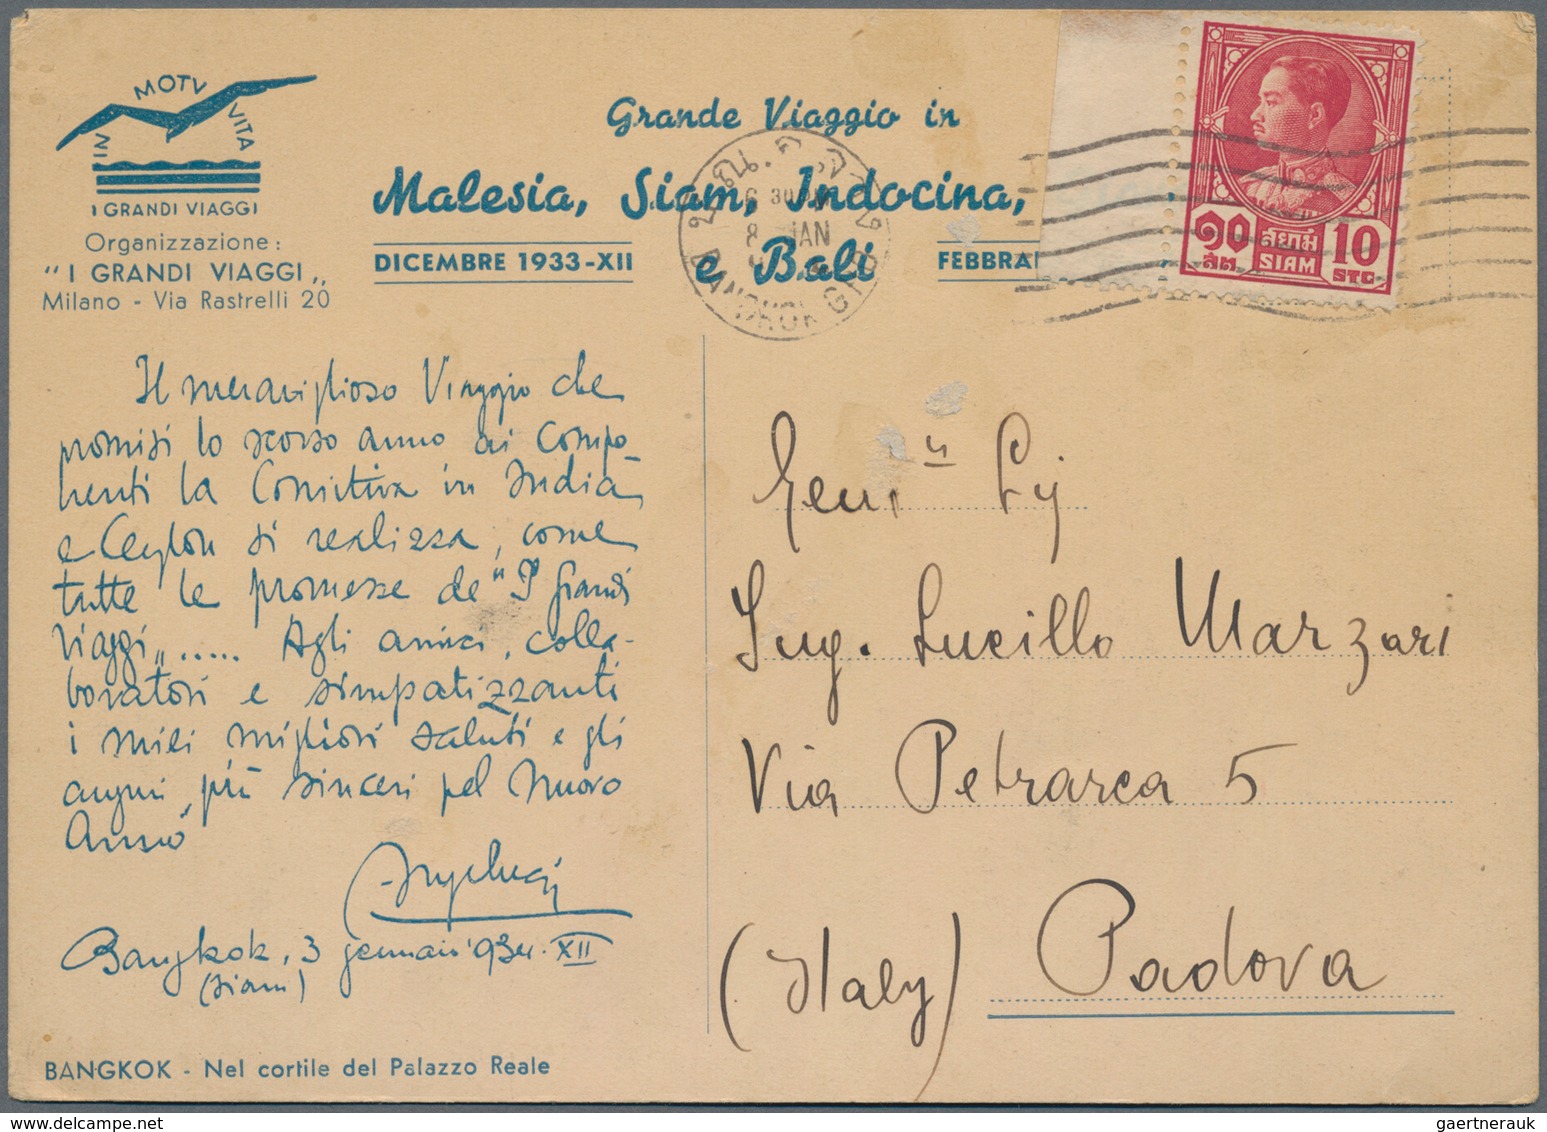 IN MOTV VITA
I GRANDI VIAGGI
Organizzazione:
"I GRANDI VIAGGI„
Milano - Via Rastrelli 20
Grande Viaggio in
Malesia, Siam, Indocina,
e Bali
DICEMBRE 1933-XII
FEBBRAI
8 JAN
BANGKOK G.P.O
๑๐ สยาม 10
สต. SIAM STG
Il meraviglioso Viaggio che
promisi lo scorso anno ai Compo-
nenti la Comitiva in India
e Ceylon si realizza, come
tutte le promesse de "I Grandi
Viaggi„..... Agli amici, colla-
boratori e simpatizzanti
i miei migliori saluti e gli
auguri più sinceri pel Nuovo
Anno
Bangkok, 3 gennaio 1934-XII
(Siam)
BANGKOK - Nel cortile del Palazzo Reale
Ing. Lucillo Marzari
Via Petrarca 5
Padova
(Italy)
gaertnerauk